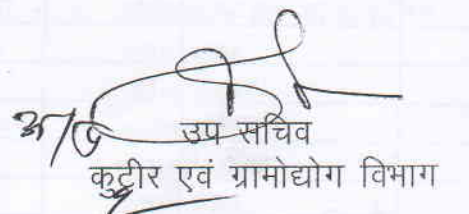 उप सचिव
कुटीर एवं ग्रामोद्योग विभाग